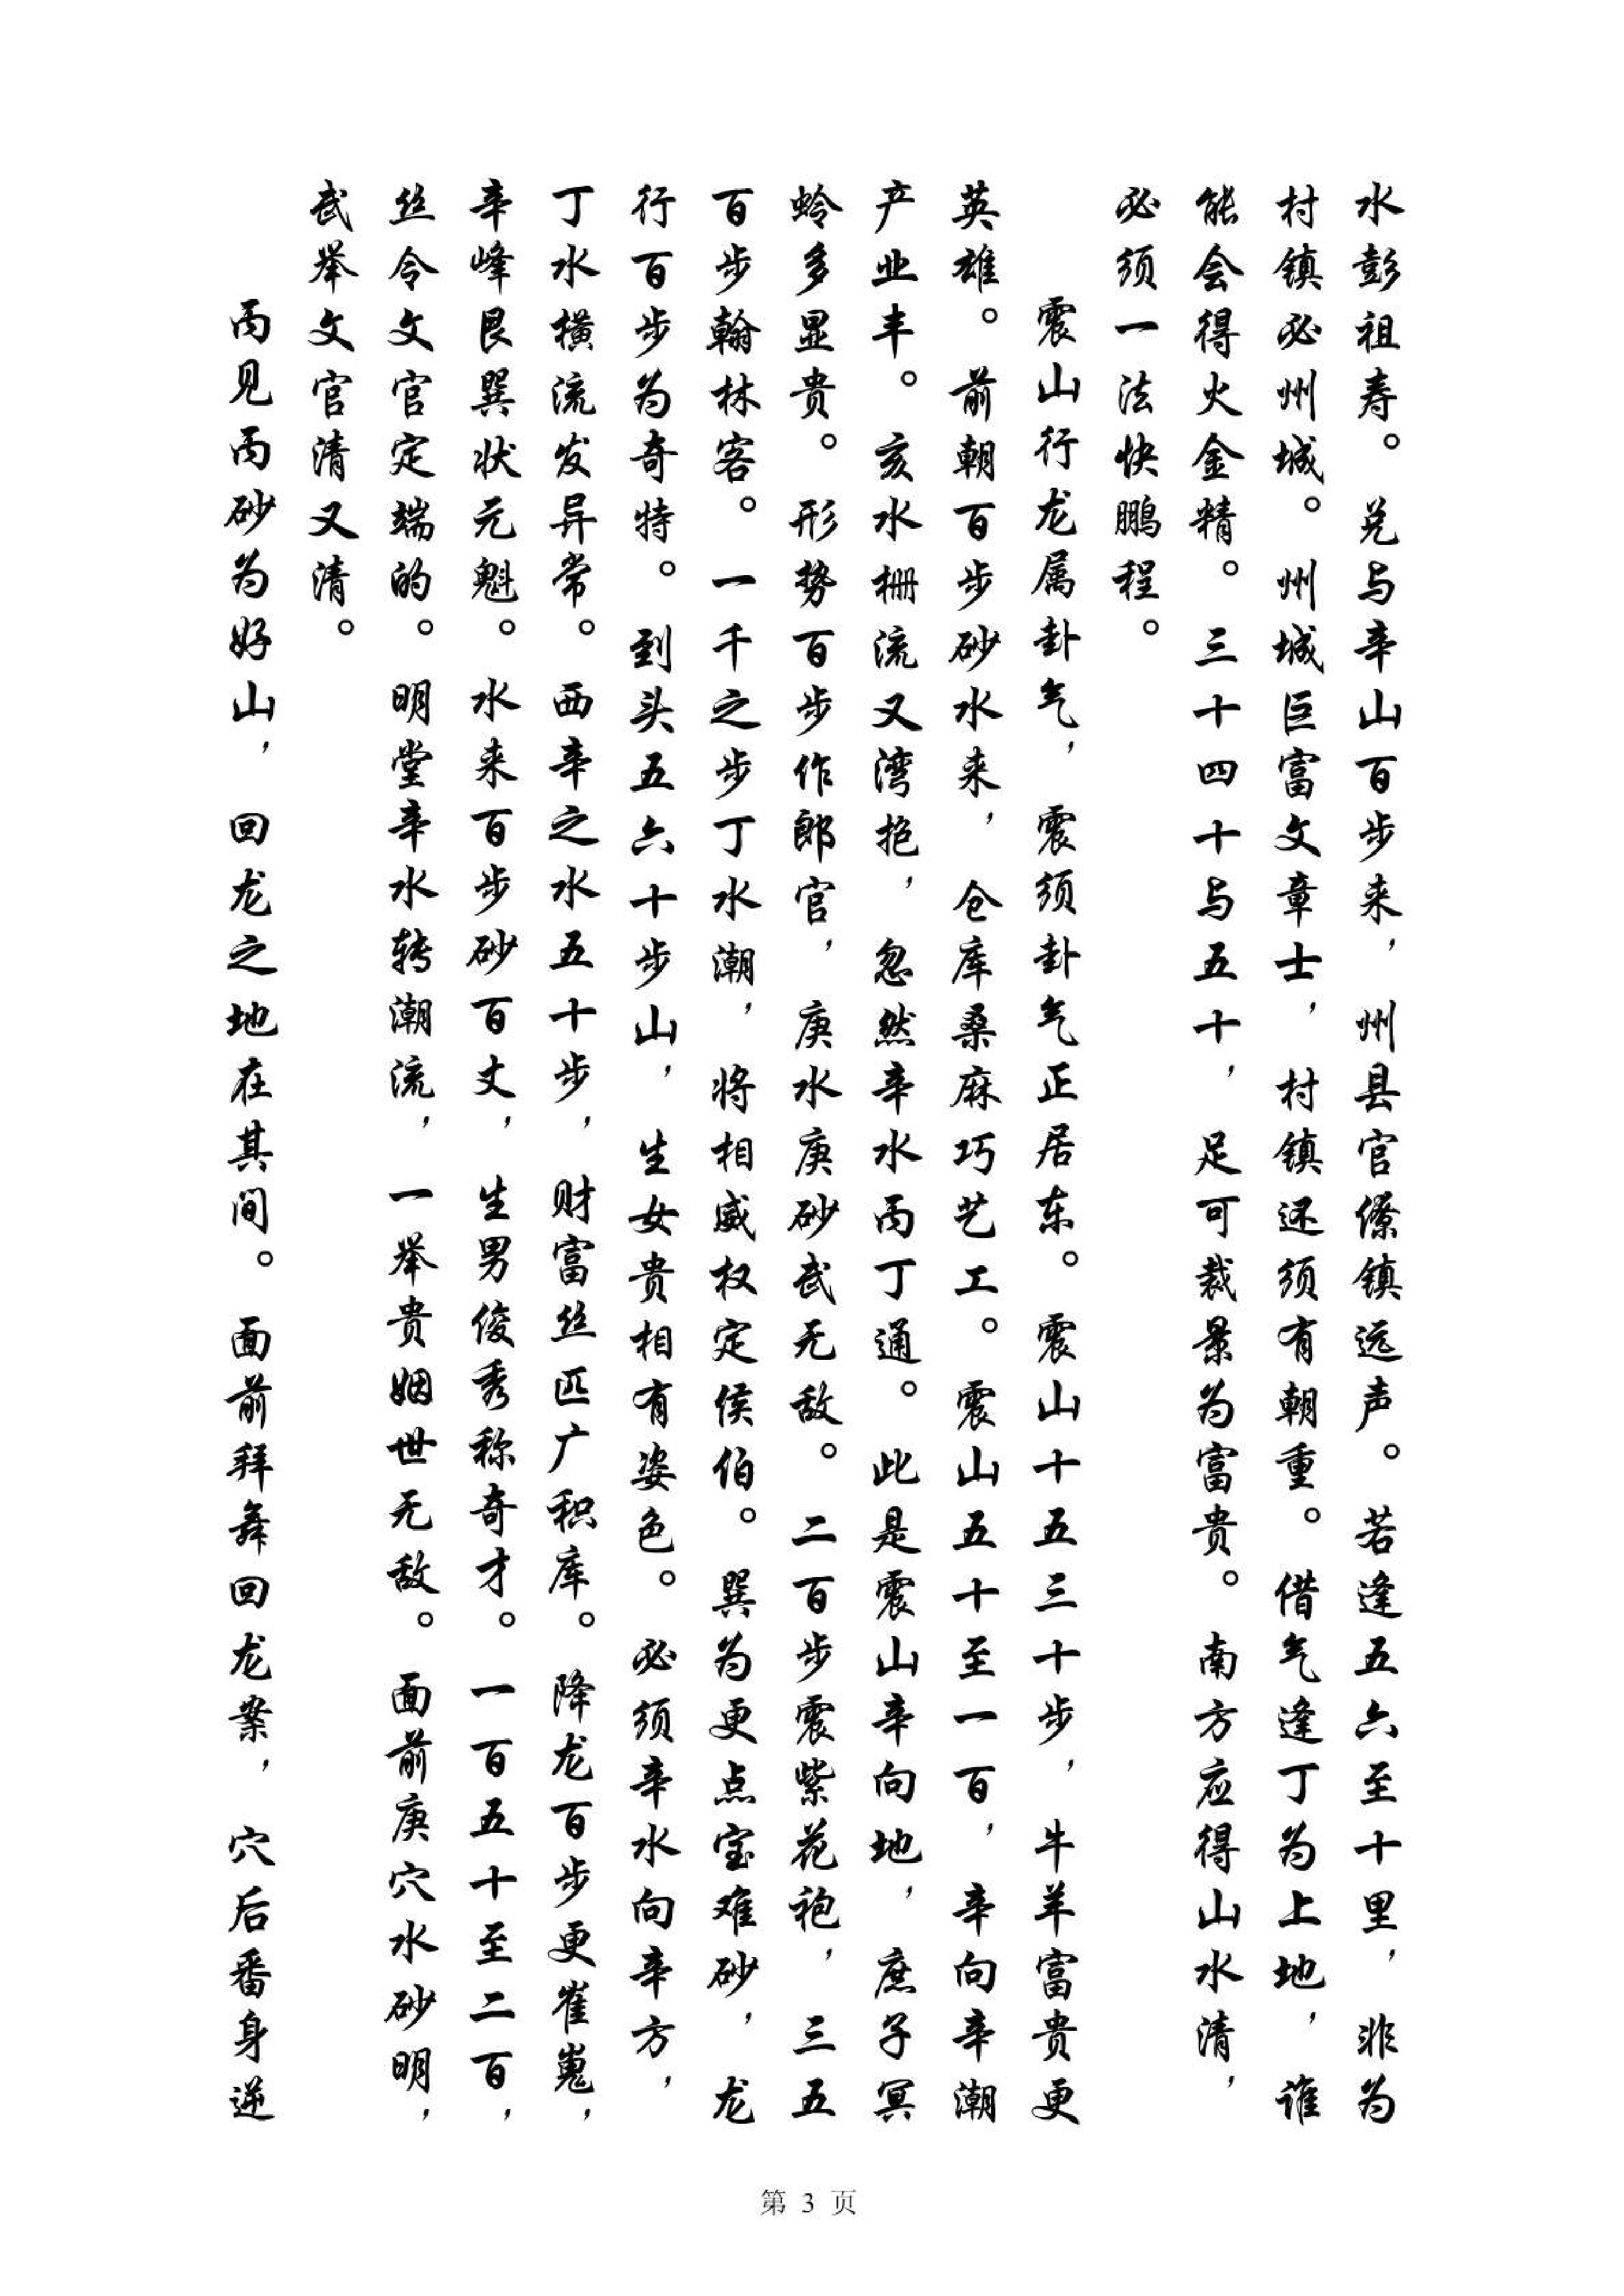 水彭祖寿。兑与辛山百步来，州县官僚镇远声。若逢五六至十里，非为
村镇必州城。州城巨富文章士，村镇还须有朝重。借气逢丁为上地，谁
能会得火金精。三十四十与五十，足可裁景为富贵。南方应得山水清，
必须一法快鹏程。
震山行龙属卦气，震须卦气正居东。震山十五三十步，牛羊富贵更
英雄。前朝百步砂水来，仓库桑麻巧艺工。震山五十至一百，辛向辛潮
产业丰。亥水栅流又湾抱，忽然辛水丙丁通。此是震山辛向地，庶子冥
蛉多显贵。形势百步作郎官，庚水庚砂武无敌。二百步震紫花袍，三五
百步翰林客。一千之步丁水潮，将相威权定侯伯。巽为更点宝难砂，龙
行百步为奇特。到头五六十步山，生女贵相有姿色。必须辛水向辛方，
丁水横流发异常。西辛之水五十步，财富丝匹广积库。降龙百步更崔嵬，
辛峰艮巽状元魁。水来百步砂百丈，生男俊秀称奇才。一百五十至二百，
丝令文官定端的。明堂辛水转潮流，一举贵姻世无敌。面前庚穴水砂明，
武举文官清又清。
丙见丙砂为好山，回龙之地在其间。面前拜舞回龙案，穴后番身逆
第 3 页